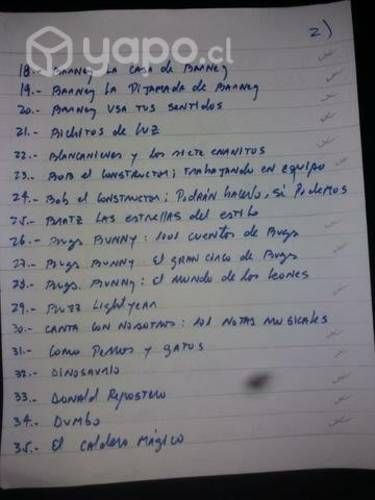 yapo.cl
2)
18.- Barney La casa de Barney
19.- Barney La Pijamada de Barney
20.- Barney usa tus sentidos
21.- Bichitos de luz
22.- Blancanieves y los siete enanitos
23.- Bob el constructor; trabajando en equipo
24.- Bob el constructor; Podrán hacerlo, sí Podemos
25.- Bratz Las estrellas del estilo
26.- Bugs Bunny: 1001 cuentos de Bugs
27.- Bugs Bunny: El gran circo de Bugs
28.- Bugs Bunny: El mundo de los leones
29.- Buzz Lightyear
30.- Canta con nosotros: 101 notas musicales
31.- Como Perros y gatos
32.- Dinosaurio
33.- Donald Repostero
34.- Dumbo
35.- El Caldero Mágico